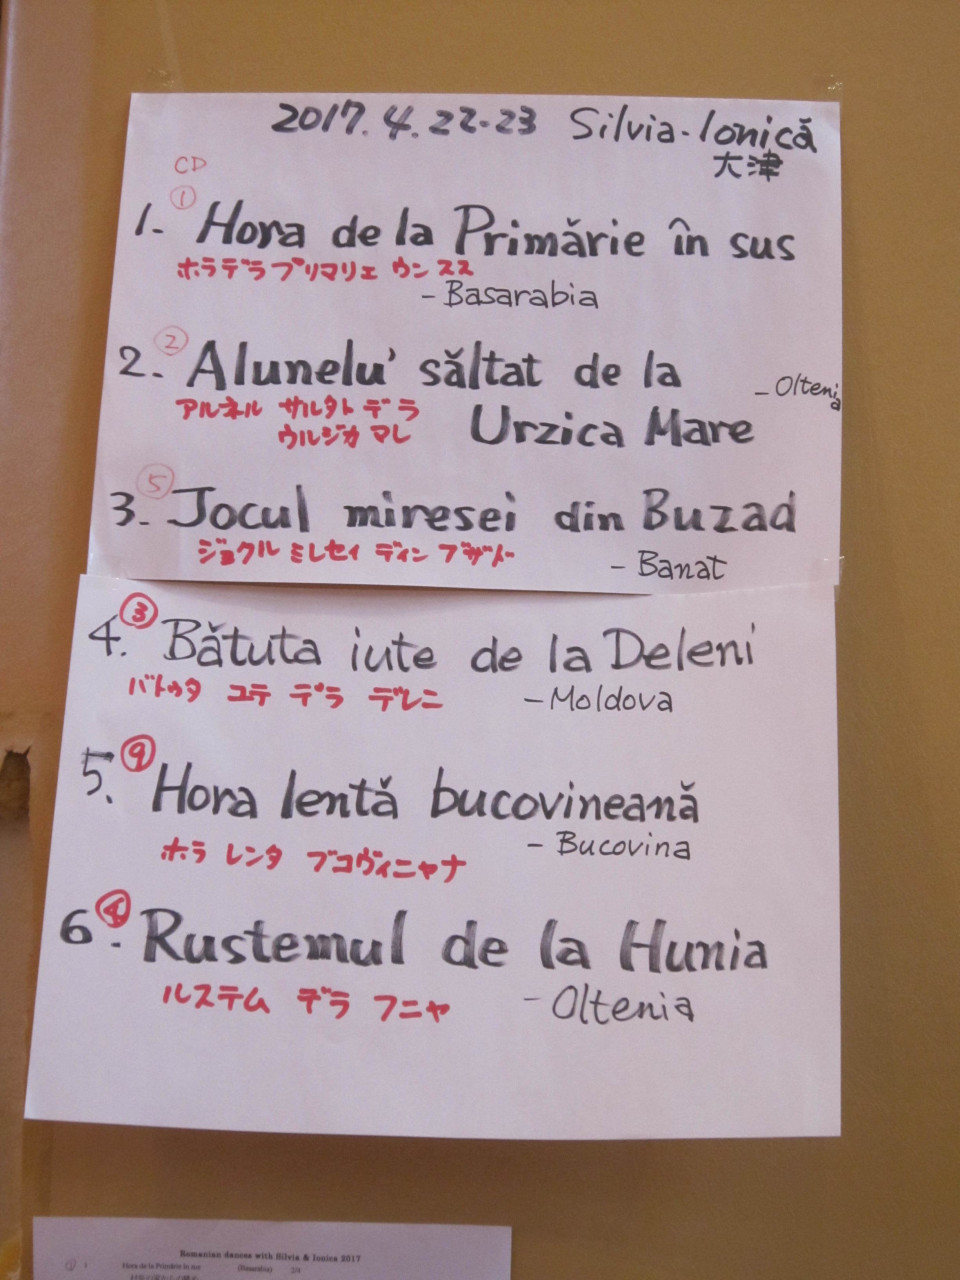 2017.4.22-23 Silvia-Ionică
大津
CD
①
1. Hora de la Primărie în sus
ホラ デラ プリマリエ ウン スス
- Basarabia
②
2. Alunelu' săltat de la
- Oltenia
アルネル サルタト デ ラ
Urzica Mare
ウルジカ マレ
⑤
3. Jocul miresei din Buzad
ジョクル ミレセイ ディン ブザド
- Banat
③
4. Bătuta iute de la Deleni
バトゥタ ユテ デラ デレニ
- Moldova
⑨
5. Hora lentă bucovineană
- Bucovina
ホラ レンタ ブコヴィニャナ
④
6. Rustemul de la Hunia
ルステム デラ フニャ
- Oltenia
Romanian dances with Silvia & Ionica 2017
① 1 Hora de la Primărie în sus (Basarabia) 2/4